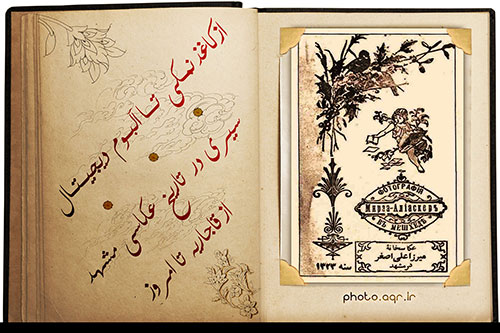 از کاغذ نمکی تا آلبوم دیجیتال
سیری در تاریخ عکاسی مشهد
از قاجاریه تا امروز
ФОТОГРАФІЯ
Мирза-Аліаскеръ
ВЪ МЕШХЕДѢ
عکاسخانهٔ
میرزا علی اصغر
در مشهد
سنه ۱۳۲۳
photo.aqr.ir